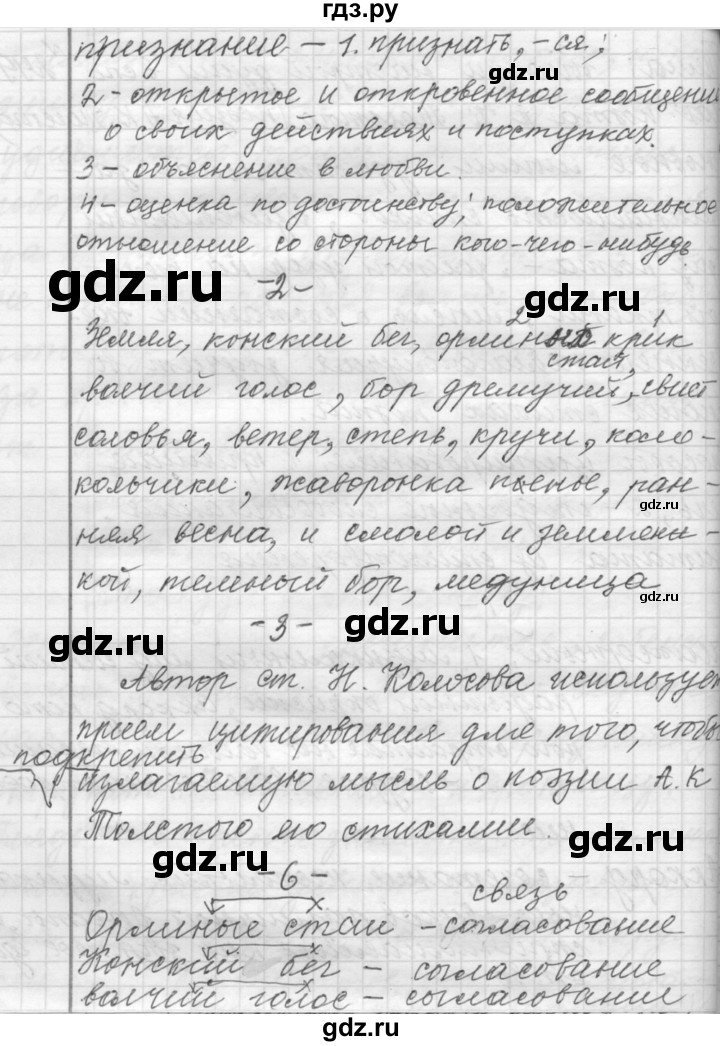 гдз.ру
признание – 1. признать, -ся;
gdz.ru
2 - открытое и откровенное сообщени
о своих действиях и поступках.
3 - объяснение в любви.
gdz.ru
4 - оценка по достоинству; положительное
отношение со стороны кого-чего-нибудь.
gdz.ru
-2-
gdz.ru
2 1
Земля, конский бег, орлиный крик
стая,
волчий голос, бор дремучий, свист
соловья, ветер, степь, кручи, коло-
кольчики, жаворонка пенье, ран-
gdz.ru
няя весна, и смолой и землени-
кой, темный бор, медуница
gdz.ru
-3-
gdz.ru
gdz.ru
Автор ст. Н. Колосова использует
прием цитирования для того, чтобы
подкрепить
излагаемую мысль о поэзии А.К
gdz.ru
Толстого его стихами.
gdz.ru
-6-
gdz.ru
связь
Орлиные стаи – согласование
Конский бег – согласование
волчий голос – согласование
gdz.ru
gdz.ru